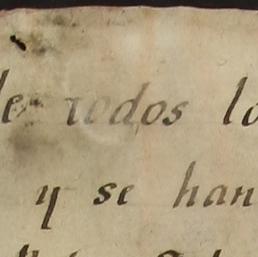 de todos lo
y se han